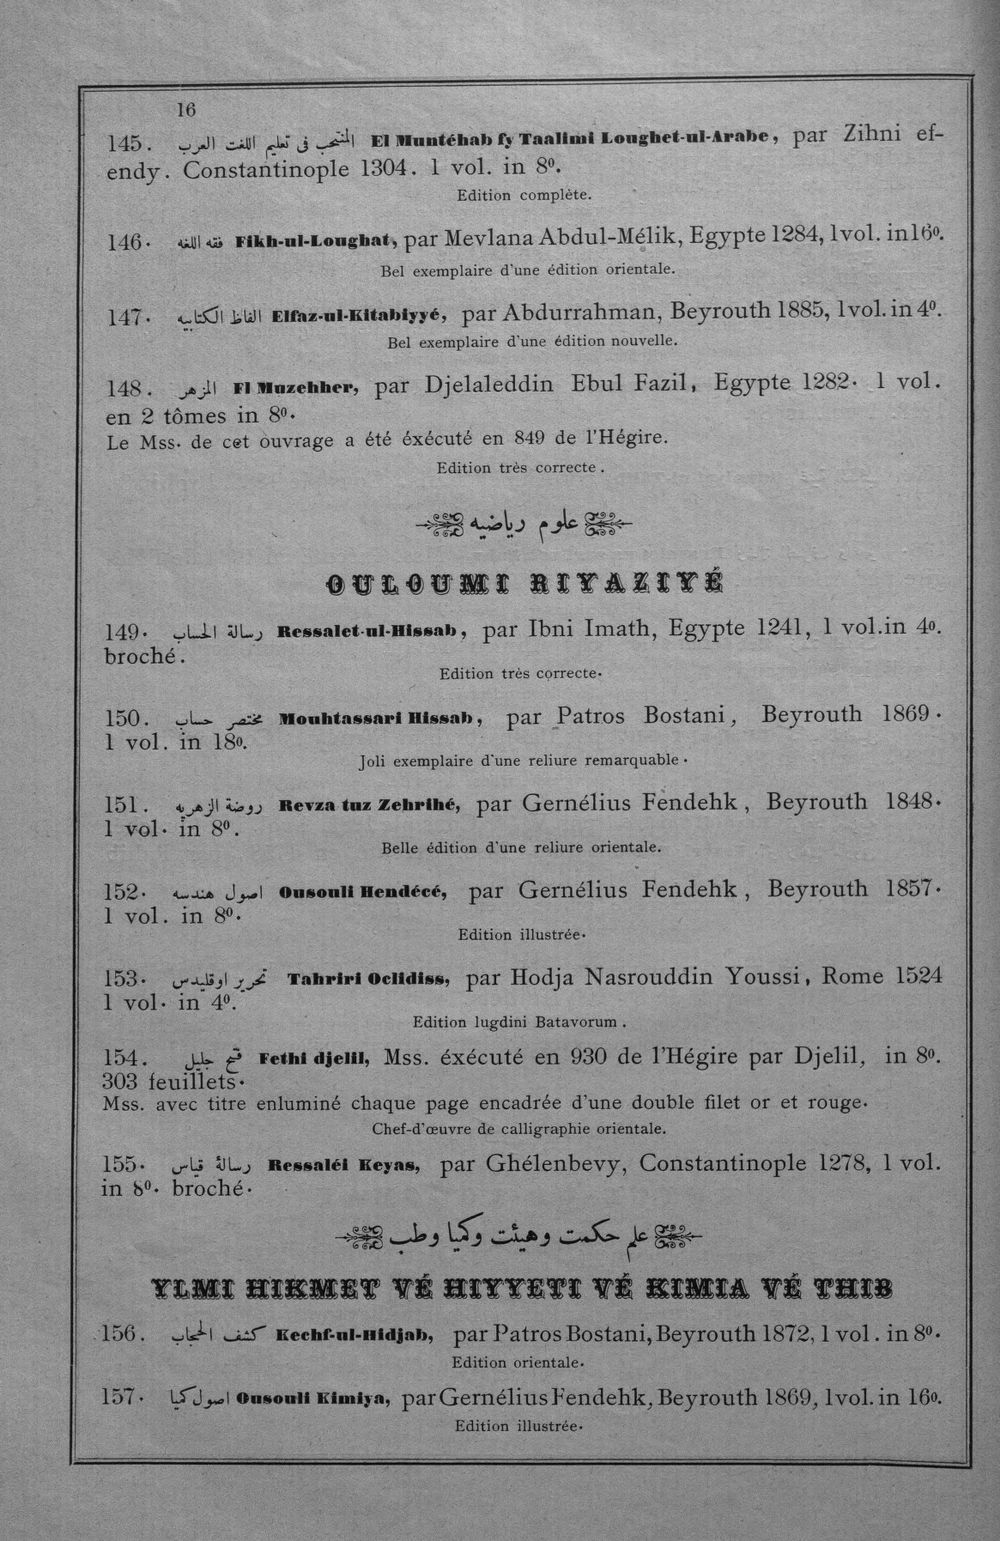 16
145. المنتخب فى تعليم اللغت العرب El Muntéhab fy Taalimi Loughet-ul-Arabe, par Zihni ef-
endy. Constantinople 1304. 1 vol. in 8º.
Edition complète.
146. فقه اللغه Fikh-ul-Loughat, par Mevlana Abdul-Mélik, Egypte 1284, 1vol. in 16º.
Bel exemplaire d'une édition orientale.
147. الفاظ الكتابيه Elfaz-ul-Kitabiyyé, par Abdurrahman, Beyrouth 1885, 1vol. in 4º.
Bel exemplaire d'une édition nouvelle.
148. المزهر El Muzehher, par Djelaleddin Ebul Fazil, Egypte 1282. 1 vol.
en 2 tômes in 8º.
Le Mss. de cet ouvrage a été éxécuté en 849 de l'Hégire.
Edition très correcte.
علوم رياضيه
OULOUMI RIYAZIYÉ
149. رسالة الحساب Ressalet-ul-Hissab, par Ibni Imath, Egypte 1241, 1 vol.in 4º.
broché.
Edition très correcte.
150. مختصر حساب Mouhtassari Hissab, par Patros Bostani, Beyrouth 1869.
1 vol. in 18º.
Joli exemplaire d'une reliure remarquable.
151. روضة الزهريه Revza tuz Zehrihé, par Gernélius Fendehk, Beyrouth 1848.
1 vol. in 8º.
Belle édition d'une reliure orientale.
152. اصول هندسه Ousouli Hendécé, par Gernélius Fendehk, Beyrouth 1857.
1 vol. in 8º.
Edition illustrée.
153. تحرير اوقليدس Tahriri Oclidiss, par Hodja Nasrouddin Youssi, Rome 1524
1 vol. in 4º.
Edition lugdini Batavorum.
154. فتح جليل Fethi djelil, Mss. éxécuté en 930 de l'Hégire par Djelil, in 8º.
303 feuillets.
Mss. avec titre enluminé chaque page encadrée d'une double filet or et rouge.
Chef-d'œuvre de calligraphie orientale.
155. رسالهٔ قياس Ressaléi Keyas, par Ghélenbevy, Constantinople 1278, 1 vol.
in 8º. broché.
علم حكمت وهيئت وكميا وطب
YLMI HIKMET VÉ HIYYETI VÉ KIMIA VÉ THIB
156. كشف الحجاب Kechf-ul-Hidjab, par Patros Bostani, Beyrouth 1872, 1 vol. in 8º.
Edition orientale.
157. اصول كميا Ousouli Kimiya, par Gernélius Fendehk, Beyrouth 1869, 1vol. in 16º.
Edition illustrée.